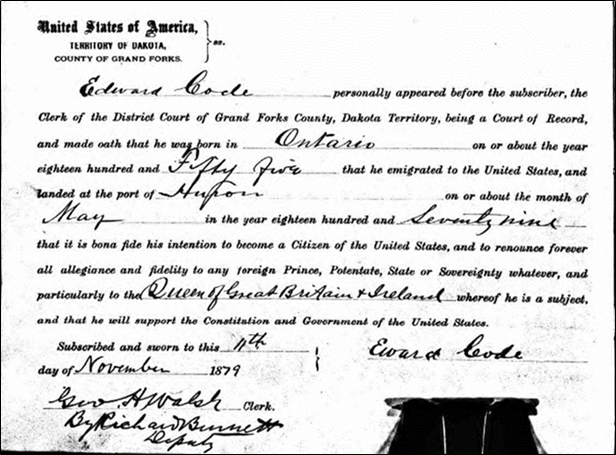 United States of America,
TERRITORY OF DAKOTA,
COUNTY OF GRAND FORKS.
} ss.
Edward Code personally appeared before the subscriber, the
Clerk of the District Court of Grand Forks County, Dakota Territory, being a Court of Record,
and made oath that he was born in Ontario on or about the year
eighteen hundred and Fifty five that he emigrated to the United States, and
landed at the port of Huron on or about the month of
May in the year eighteen hundred and Seventy nine
that it is bona fide his intention to become a Citizen of the United States, and to renounce forever
all allegiance and fidelity to any foreign Prince, Potentate, State or Sovereignty whatever, and
particularly to the Queen of Great Britain & Ireland whereof he is a subject,
and that he will support the Constitution and Government of the United States.
Subscribed and sworn to this 11th
day of November 1879
Eward Code
Geo H Walsh Clerk.
By Richard Bennett
Deputy